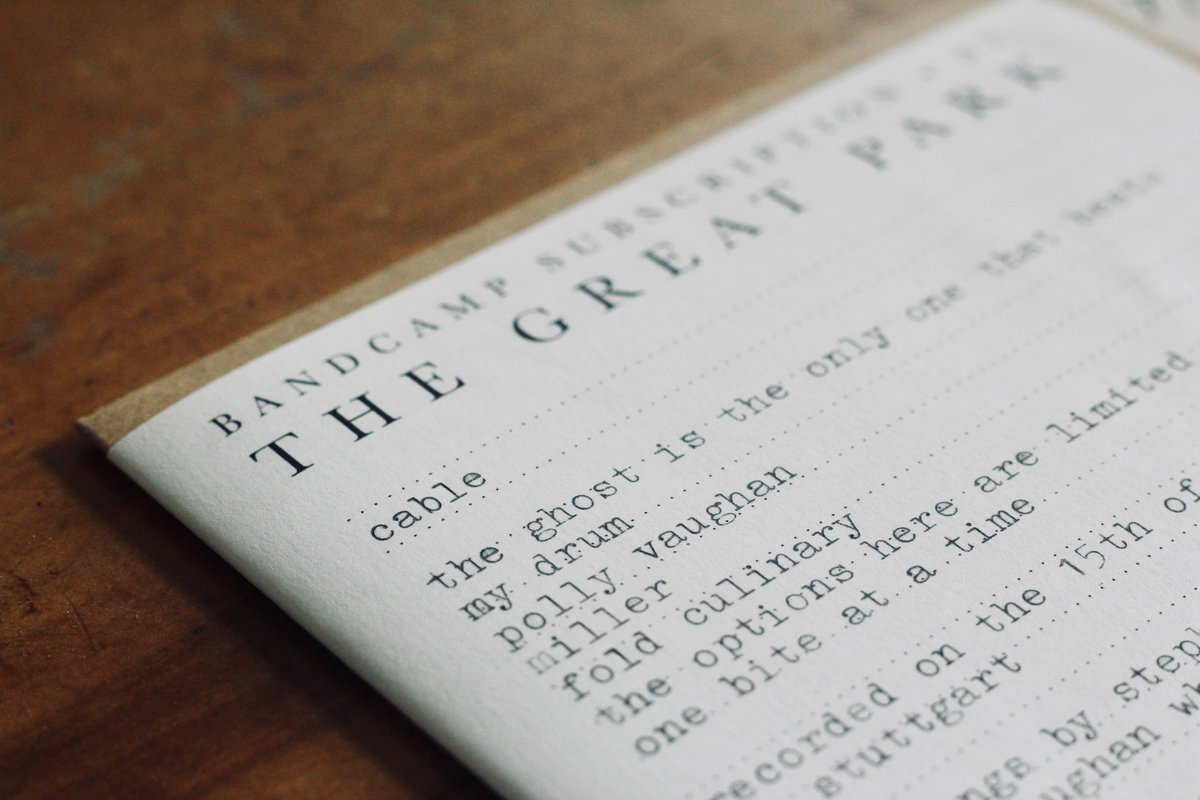 BANDCAMP SUBSCRIPTION
THE GREAT PARK
cable
the ghost is the only one that beats
my drum
polly vaughan
miller
fold culinary
the options here are limited
one bite at a time
recorded on the 15th of
stuttgart
by